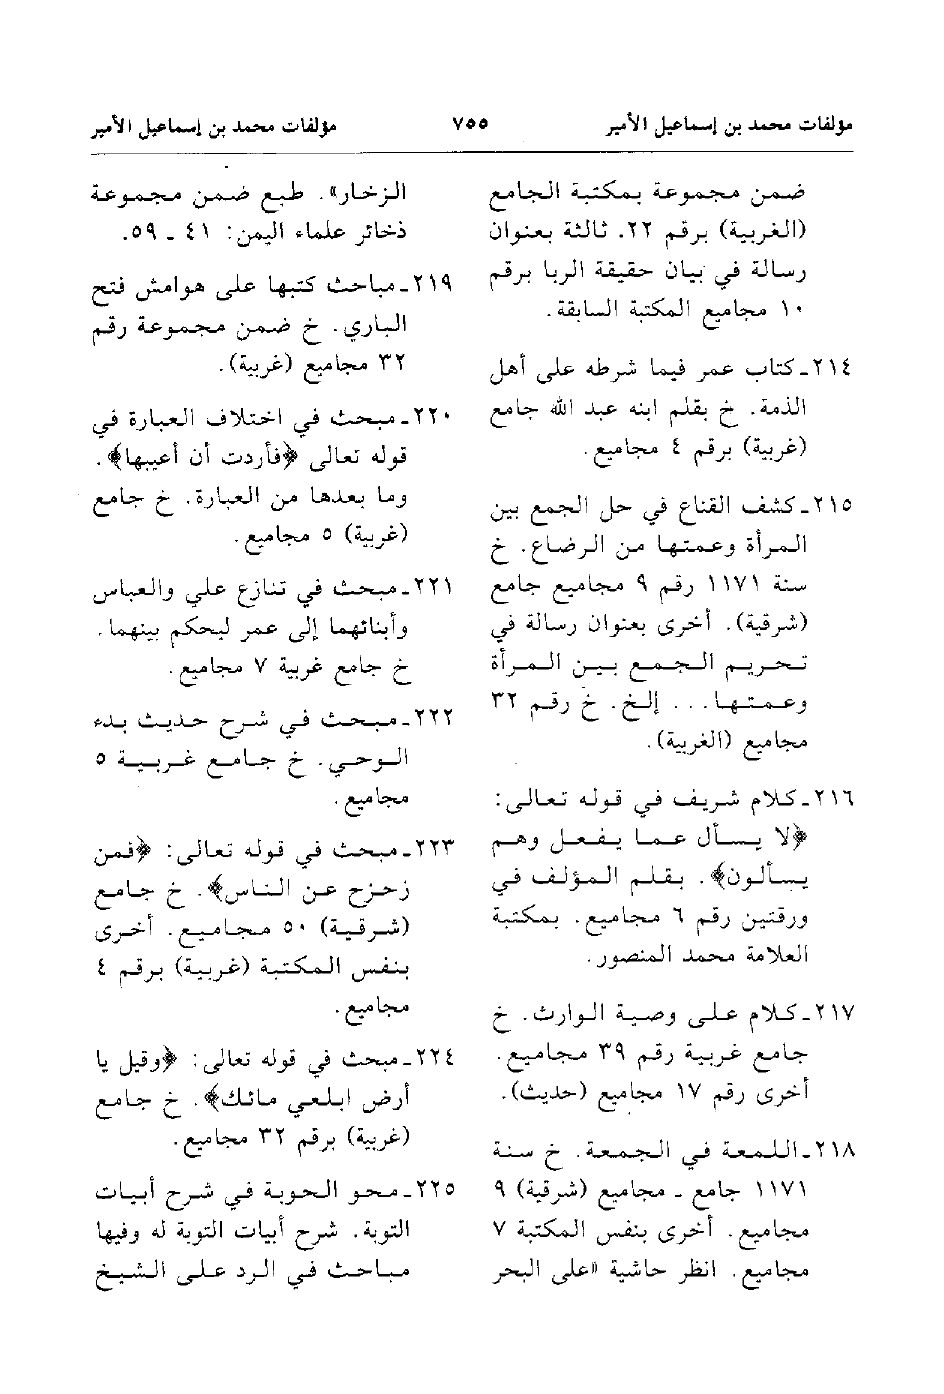 مؤلفات محمد بن إسماعيل الأمير ٧٥٥ مؤلفات محمد بن إسماعيل الأمير
ضمن مجموعة بمكتبة الجامع
(الغربية) برقم ٢٢. ثالثة بعنوان
رسالة في بيان حقيقة الربا برقم
١٠ مجاميع المكتبة السابقة.
٢١٤ـ كتاب عمر فيما شرطه على أهل
الذمة. خ بقلم ابنه عبد الله جامع
(غربية) برقم ٤ مجاميع.
٢١٥ـ كشف القناع في حل الجمع بين
المرأة وعمتها من الرضاع. خ
سنة ١١٧١ رقم ٩ مجاميع جامع
(شرقية). أخرى بعنوان رسالة في
تحريم الجمع بين المرأة
وعمتها... إلخ. خ رقم ٣٢
مجاميع (الغربية).
٢١٦ـ كلام شريف في قوله تعالى:
﴿لا يسأل عما يفعل وهم
يسألون﴾. بقلم المؤلف في
ورقتين رقم ٦ مجاميع. بمكتبة
العلامة محمد المنصور.
٢١٧ـ كلام على وصية الوارث. خ
جامع غربية رقم ٣٩ مجاميع.
أخرى رقم ١٧ مجاميع (حديث).
٢١٨ـ اللمعة في الجمعة. خ سنة
١١٧١ جامع ـ مجاميع (شرقية) ٩
مجاميع. أخرى بنفس المكتبة ٧
مجاميع. انظر حاشية «على البحر
الزخار». طبع ضمن مجموعة
ذخائر علماء اليمن: ٤١ ـ ٥٩.
٢١٩ـ مباحث كتبها على هوامش فتح
الباري. خ ضمن مجموعة رقم
٣٢ مجاميع (غربية).
٢٢٠ـ مبحث في اختلاف العبارة في
قوله تعالى ﴿فأردت أن أعيبها﴾.
وما بعدها من العبارة. خ جامع
(غربية) ٥ مجاميع.
٢٢١ـ مبحث في تنازع علي والعباس
وأبنائهما إلى عمر ليحكم بينهما.
خ جامع غربية ٧ مجاميع.
٢٢٢ـ مبحث في شرح حديث بدء
الوحي. خ جامع غربية ٥
مجاميع.
٢٢٣ـ مبحث في قوله تعالى: ﴿فمن
زحزح عن الناس﴾. خ جامع
(شرقية) ٥٠ مجاميع. أخرى
بنفس المكتبة (غربية) برقم ٤
مجاميع.
٢٢٤ـ مبحث في قوله تعالى: ﴿وقيل يا
أرض ابلعي مائك﴾. خ جامع
(غربية) برقم ٣٢ مجاميع.
٢٢٥ـ محو الحوبة في شرح أبيات
التوبة. شرح أبيات التوبة له وفيها
مباحث في الرد على الشيخ